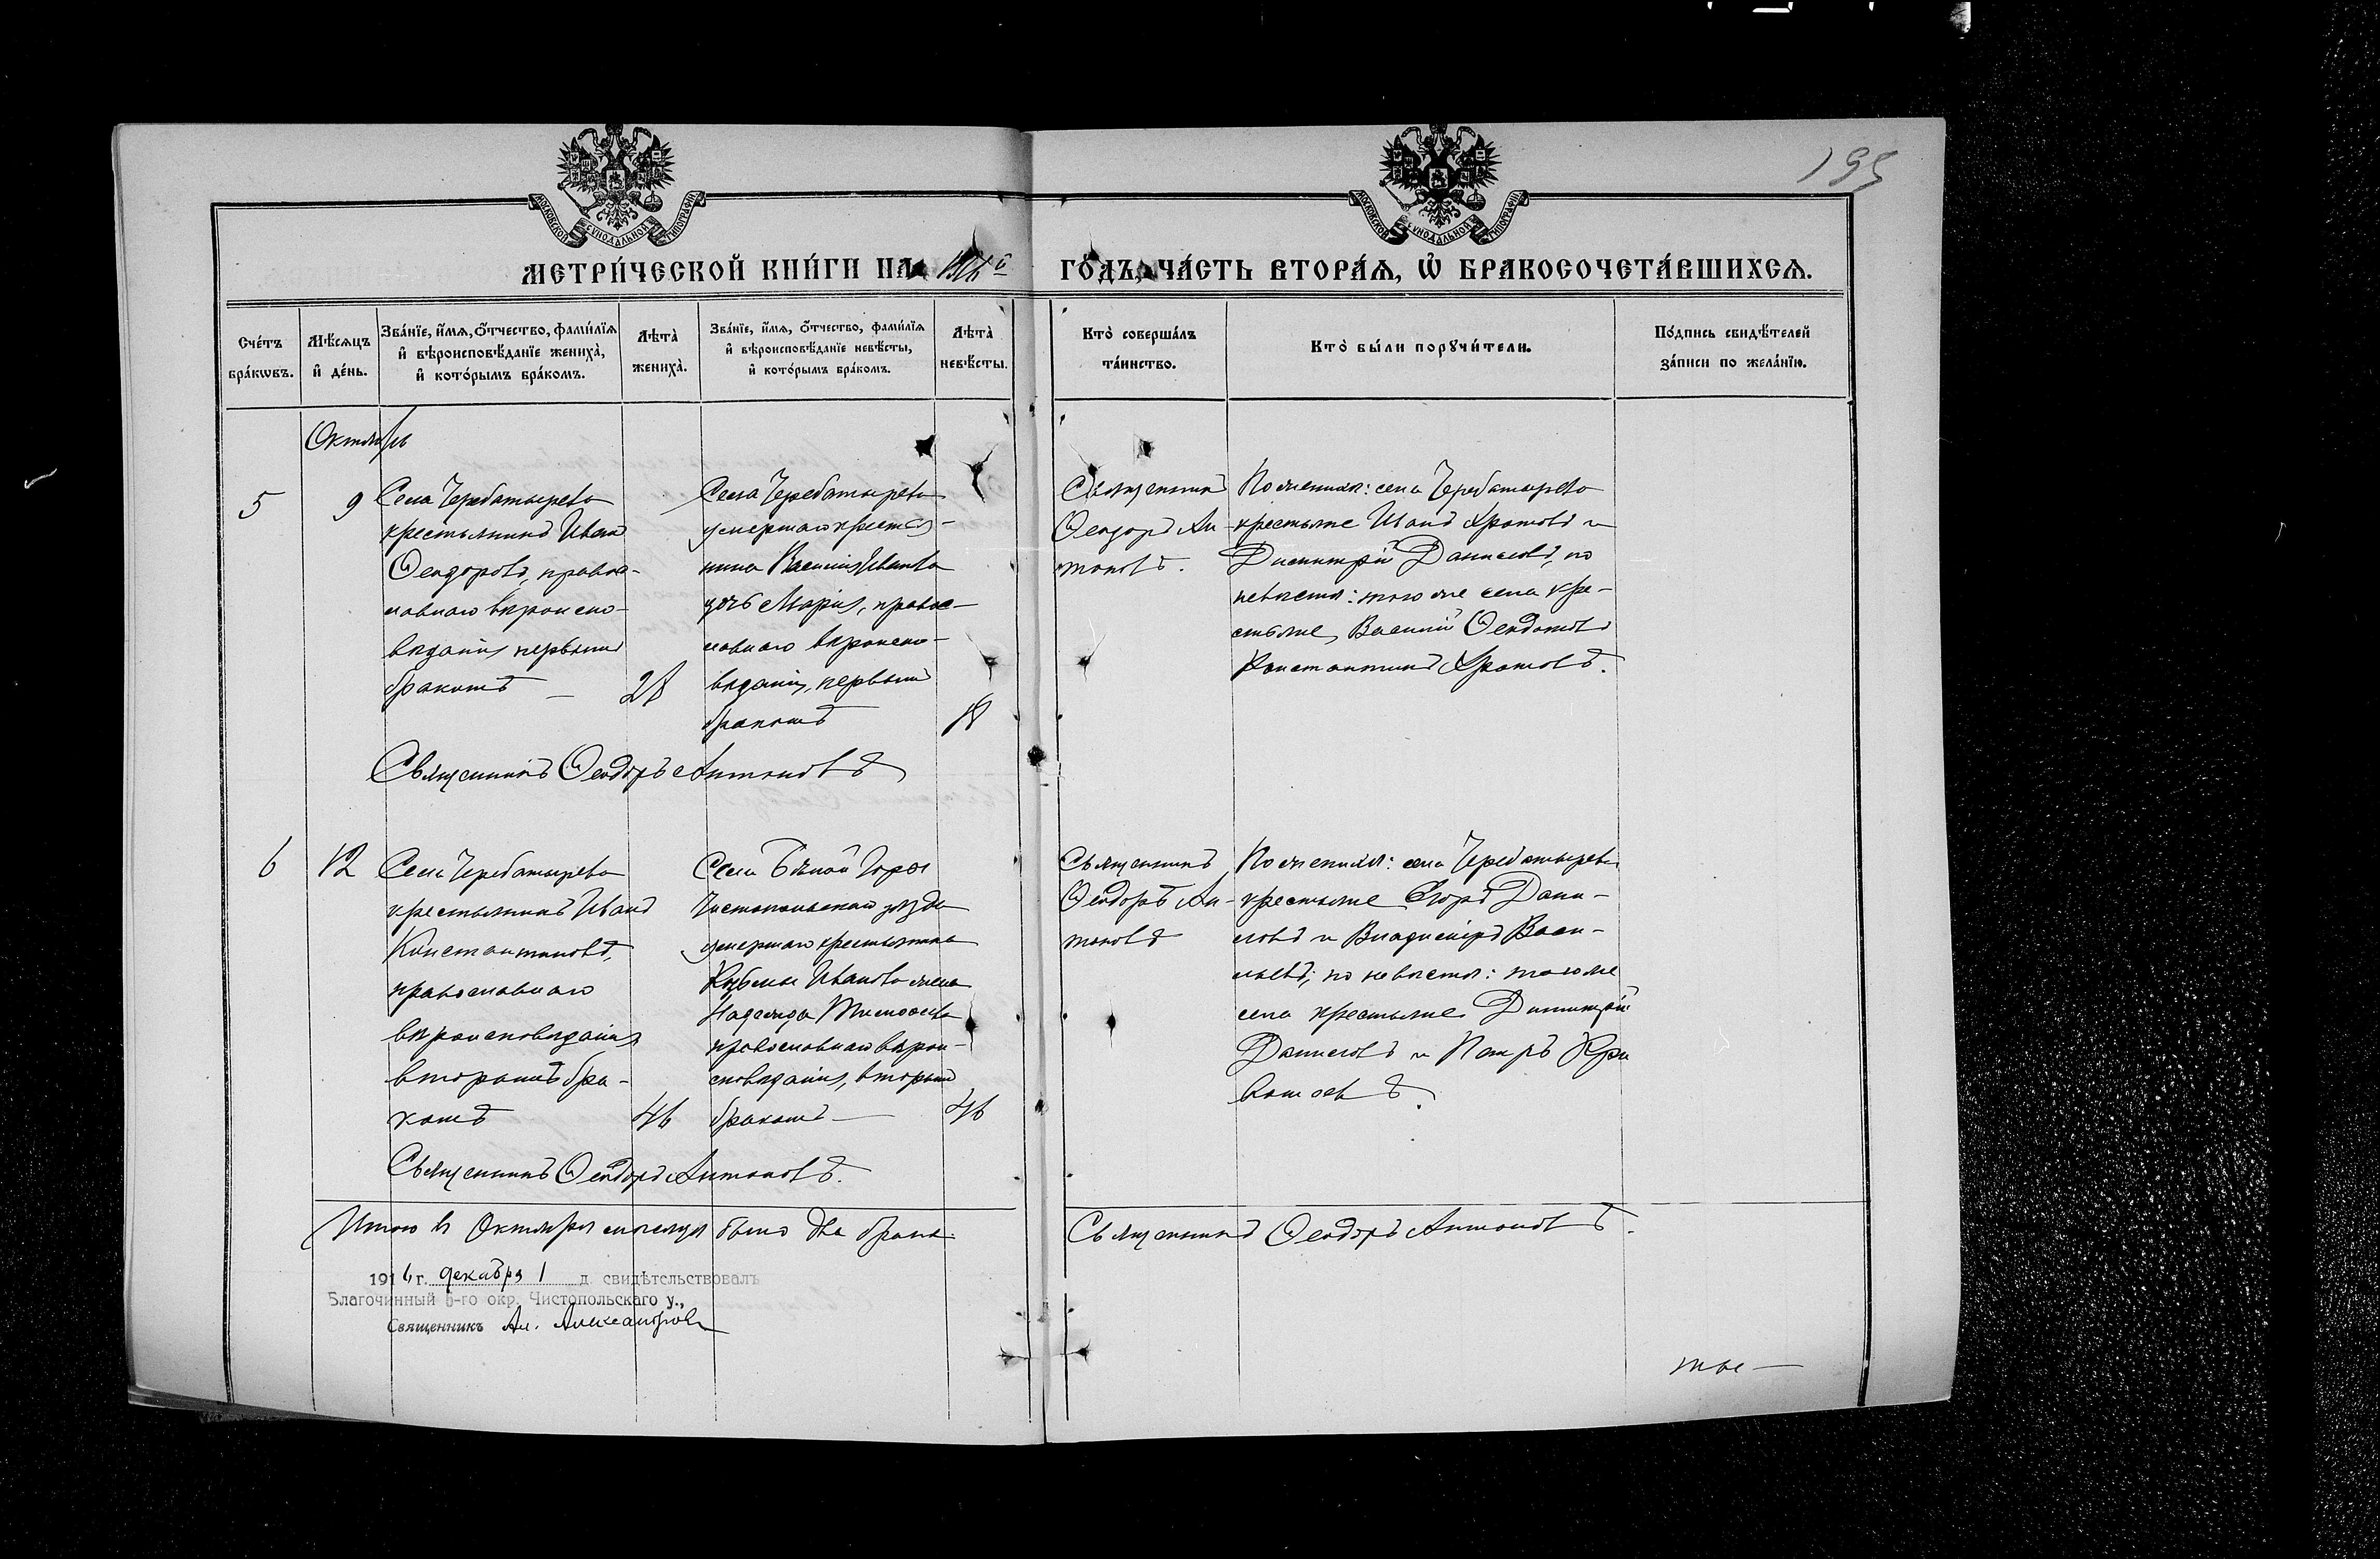 195
МОСКОВСКОЙ СѴНОДАЛЬНОЙ ТИПОГРАФІИ
МОСКОВСКОЙ СѴНОДАЛЬНОЙ ТИПОГРАФІИ
МЕТРИ́ЧЕСКОЙ КНИ́ГИ НА 1916й ГО́ДЪ, ЧА́СТЬ ВТОРА́Ѧ, Ѡ҆ БРАКОСОЧЕТА́ВШИХСѦ.
Сче́тъ
бра́кѡвъ.
Мѣ́сѧцъ
и҆ де́нь.
Зва́нїе, и҆́мѧ, ѻ҆́тчество, фами́лїѧ
и҆ вѣроисповѣ́данїе жениха̀,
и҆ кото́рымъ бра́комъ.
Лѣта̀
жениха̀.
Зва́нїе, и҆́мѧ, ѻ҆́тчество, фами́лїѧ
и҆ вѣроисповѣ́данїе невѣ́сты,
и҆ кото́рымъ бра́комъ.
Лѣта̀
невѣ́сты.
Кто̀ соверша́лъ
та́инство.
Кто̀ бы́ли порꙋчи́тели.
По́дпись свидѣ́телей
за́писи по жела́нїю.
Октябрь
5
9
Села Черебатырева
крестьянинъ Иванъ
Ѳеодоровъ, правос-
лавнаго вѣроиспо-
вѣданія, первымъ
бракомъ
28
Села Черебатырева
умершаго крестья-
нина Василія Иванова
дочь Марія, правос-
лавнаго вѣроиспо-
вѣданія, первымъ
бракомъ
18
Священникъ
Ѳеодоръ Ан-
тоновъ.
По женихѣ: села Черебатырева
крестьяне Иванъ Храмовъ и
Димитрій Даниловъ, по
невѣстѣ: того же села кре-
стьяне, Василій Ѳедотовъ
Константинъ Храмовъ.
Священникъ Ѳеодоръ Антоновъ
6
12
Села Черебатырева
крестьянинъ Иванъ
Константиновъ,
православнаго
вѣроисповѣданія
вторымъ бра-
комъ
46
Села Бѣлой Горы
Чистопольскаго уѣзда
умершаго крестьянина
Кузьмы Иванова жена
Надежда Тимоѳеева
православнаго вѣрои-
сповѣданія, вторымъ
бракомъ
46
Священникъ
Ѳеодоръ Ан-
тоновъ
По женихѣ: села Черебатырева
крестьяне Егоръ Дани-
ловъ и Владиміръ Васи-
льевъ; по невѣстѣ: того же
села крестьяне Димитрій
Даниловъ и Петръ
Священникъ Ѳеодоръ Антоновъ.
Итого въ Октябрѣ мѣсяцѣ было два брака
Священникъ Ѳеодоръ Антоновъ.
1916 г. декабря 1 д. свидѣтельствовалъ
Благочинный 5-го окр. Чистопольскаго у.,
Священникъ Ал. Александровъ